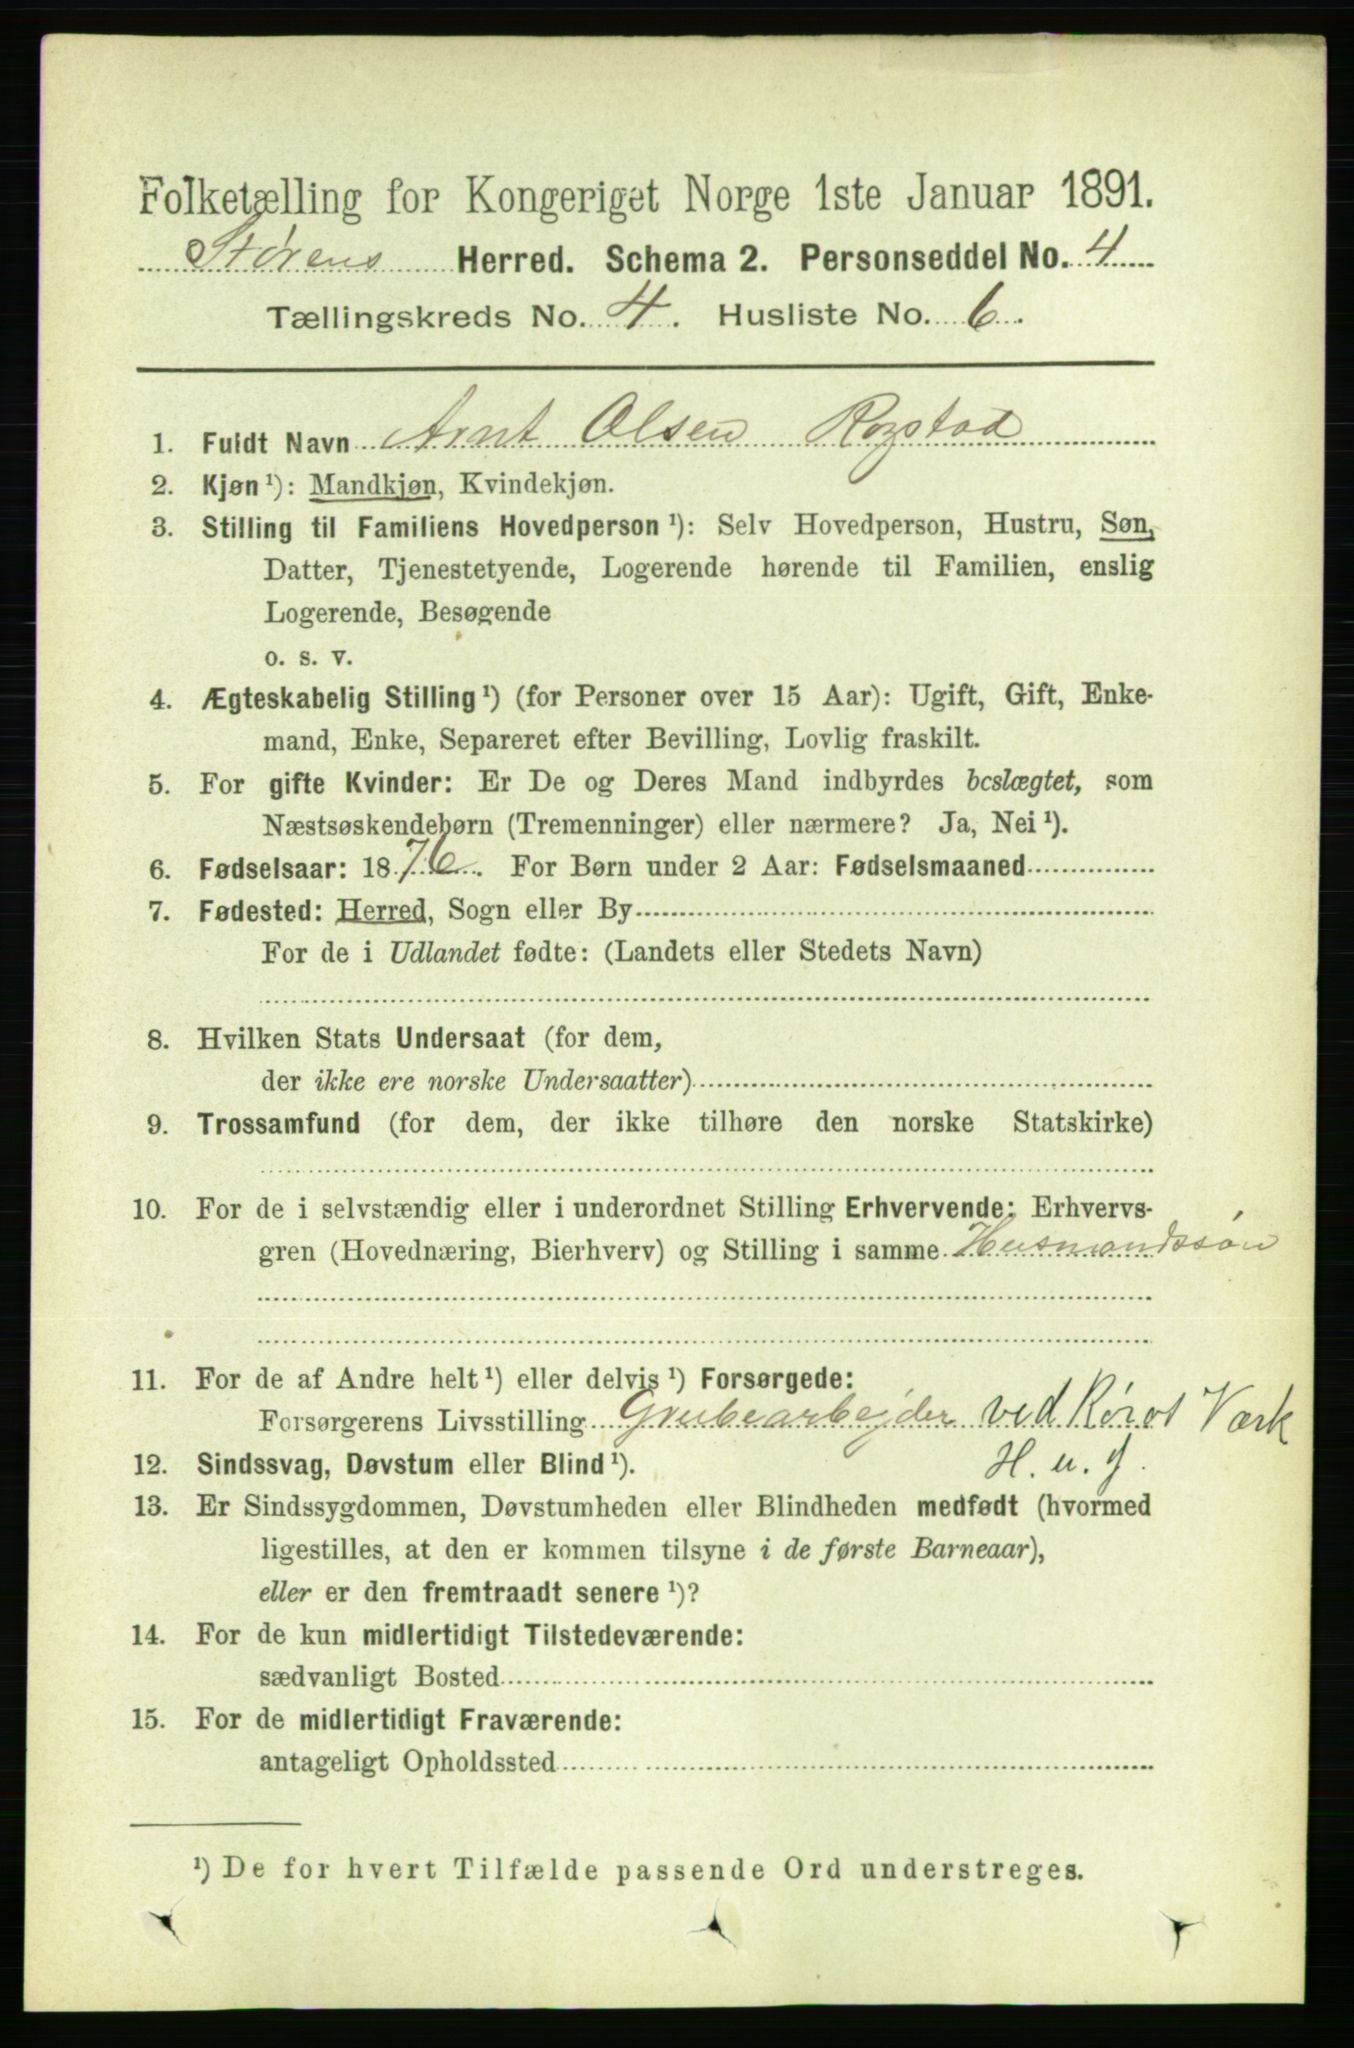 Folketælling for Kongeriget Norge 1ste Januar 1891.
Størens Herred. Schema 2. Personseddel No. 4
Tællingskreds No. 4. Husliste No. 6.
1. Fuldt Navn Arnt Olsen Rogstad
2. Kjøn ¹): Mandkjøn, Kvindekjøn.
3. Stilling til Familiens Hovedperson ¹): Selv Hovedperson, Hustru, Søn,
Datter, Tjenestetyende, Logerende hørende til Familien, enslig
Logerende, Besøgende
o. s. v.
4. Ægteskabelig Stilling ¹) (for Personer over 15 Aar): Ugift, Gift, Enke-
mand, Enke, Separeret efter Bevilling, Lovlig fraskilt.
5. For gifte Kvinder: Er De og Deres Mand indbyrdes beslægtet, som
Næstsøskendebørn (Tremenninger) eller nærmere? Ja, Nei ¹).
6. Fødselsaar: 1876. For Børn under 2 Aar: Fødselsmaaned
7. Fødested: Herred, Sogn eller By
For de i Udlandet fødte: (Landets eller Stedets Navn)
8. Hvilken Stats Undersaat (for dem,
der ikke ere norske Undersaatter)
9. Trossamfund (for dem, der ikke tilhøre den norske Statskirke)
10. For de i selvstændig eller i underordnet Stilling Erhvervende: Erhvervs-
gren (Hovednæring, Bierhverv) og Stilling i samme Husmandssøn
11. For de af Andre helt ¹) eller delvis ¹) Forsørgede:
Forsørgerens Livsstilling Grubearbejder ved Røros Værk
12. Sindssvag, Døvstum eller Blind ¹). H. u. J.
13. Er Sindssygdommen, Døvstumheden eller Blindheden medfødt (hvormed
ligestilles, at den er kommen tilsyne i de første Barneaar),
eller er den fremtraadt senere ¹)?
14. For de kun midlertidigt Tilstedeværende:
sædvanligt Bosted
15. For de midlertidigt Fraværende:
antageligt Opholdssted
¹) De for hvert Tilfælde passende Ord understreges.